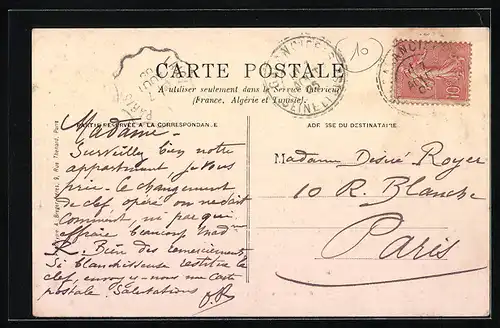 10
CARTE POSTALE
A utiliser seulement dans le Service Intérieur
(France, Algérie et Tunisie).
PARTIE RÉSERVÉE A LA CORRESPONDANCE
ADRESSE DU DESTINATAIRE
Madame -
Surveillez bien notre
appartement je vous
prie - le changement
de clef opéré on ne sait
comment, ni par qui
effraie beaucoup Mad
R - Bien des remerciements
Si blanchisseuse restitue la
clef, envoyez-nous une carte
postale. Salutations
Madame Désiré Royer
10 R. Blanche
Paris
PARIS
10